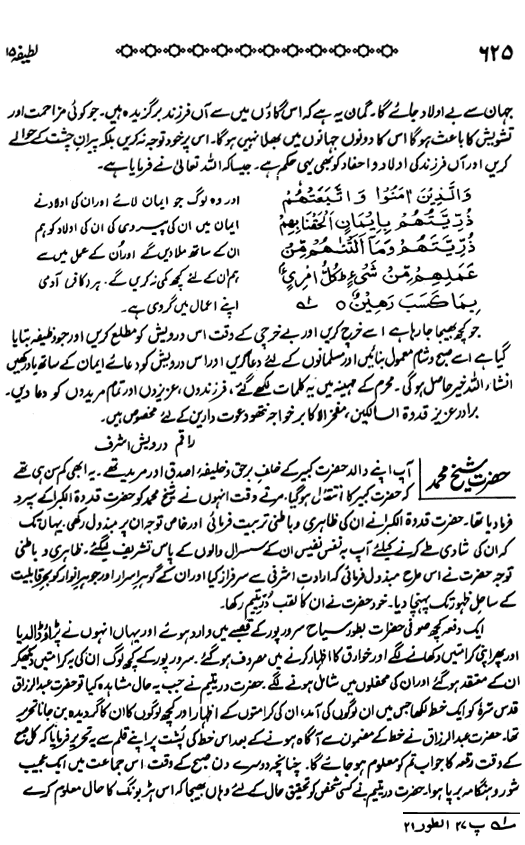 لطیفہ ۱۵
۶۲۵
جہان سے بے اولاد جائے گا۔ گمان یہ ہے کہ اس گاؤں میں سے آں فرزند برگزیدہ ہیں۔ جو کوئی مزاحمت اور
تشویش کا باعث ہوگا اس کا دونوں جہانوں میں بھلا نہیں ہوگا۔ اس پر خود توجہ نہ کریں بلکہ پیرانِ چشت کے حوالے
کریں اور آں فرزند کی اولاد و احفاد کو بھی یہی حکم ہے۔ جیسا کہ اللہ تعالیٰ نے فرمایا ہے۔
وَالَّذِیْنَ اٰمَنُوْا وَاتَّبَعَتْهُمْ
ذُرِّیَّتُهُمْ بِاِیْمَانٍ اَلْحَقْنَا بِهِمْ
ذُرِّیَّتَهُمْ وَمَا اَلَتْنٰهُمْ مِّنْ
عَمَلِهِمْ مِّنْ شَیْءٍ ؕ كُلُّ امْرِیٍٔۢ
بِمَا كَسَبَ رَهِیْنٌ ۝ لہ
اور وہ لوگ جو ایمان لائے اور ان کی اولاد نے
ایمان میں ان کی پیروی کی ان کی اولاد کو ہم
ان کے ساتھ ملا دیں گے اور اُن کے عمل میں سے
ہم ان کے لئے کچھ کمی نہ کریں گے۔ ہر کافر آدمی
اپنے اعمال میں گروی ہے۔
جو کچھ بھیجا جا رہا ہے اسے خرچ کریں اور بے خرچی کے وقت اس درویش کو مطلع کریں اور جو وظیفہ بتایا
گیا ہے اسے صبح و شام معمول بنائیں اور مسلمانوں کے لئے دعا کریں اور اس درویش کو دعائے ایمان کے ساتھ یاد رکھیں
انشاء اللہ خیر حاصل ہوگی۔ محرم کے مہینہ میں یہ کلمات لکھے گئے، فرزندوں، عزیزوں اور تمام مریدوں کو دعا دیں۔
برادر عزیز قدوۃ السالکین، مفخر الاکابر خواجہ نتھو دعوت دارین کے لئے مخصوص ہیں۔
راقم درویش اشرف
حضرت شیخ محمد
آپ اپنے والد حضرت کبیر کے خلف برحق و خلیفۂ اصدق اور مرید تھے۔ یہ ابھی کم سن ہی تھے
کہ حضرت کبیر کا انتقال ہوگیا۔ مرتے وقت انہوں نے شیخ محمد کو حضرت قدوۃ الکبرا کے سپرد
فرما دیا تھا۔ حضرت قدوۃ الکبرا نے ان کی ظاہری و باطنی تربیت فرمائی اور خاص توجہ ان پر مبذول رکھی۔ یہاں تک
کہ ان کی شادی طے کرنے کیلئے آپ بہ نفس نفیس ان کے سسرال والوں کے پاس تشریف لیگئے۔ ظاہری و باطنی
توجہ حضرت نے اس طرح مبذول فرمائی کہ ارادتِ اشرفی سے سرفراز کیا اور ان کے گوہرِ اسرار اور جوہرِ انوار کو بحرِ قابلیت
کے ساحل ظہور تک پہنچا دیا۔ خود حضرت نے ان کا لقب دُرِّ یتیم رکھا۔
ایک دفعہ کچھ صوفی حضرت بطور سیاح سرور پور کے قصبے میں وارد ہوئے اور یہاں انہوں نے پڑاؤ ڈالدیا
اور پھر اپنی کرامتیں دکھانے لگے اور خوارق کا اظہار کرنے میں مصروف ہوگئے۔ سرور پور کے کچھ لوگ ان کی یہ کرامتیں دیکھکر
ان کے معتقد ہوگئے اور ان کی محفلوں میں شامل ہونے لگے۔ حضرت دُرِّ یتیم نے جب یہ حال مشاہدہ کیا تو حضرت عبدالرزاق
قدس سرہٗ کو ایک خط لکھا جس میں ان لوگوں کی آمد، ان کی کرامتوں کے اظہار اور کچھ لوگوں کا ان کا گرویدہ بن جانا تحریر
تھا۔ حضرت عبدالرزاق نے خط کے مضمون سے آگاہ ہونے کے بعد اس خط کی پُشت پر اپنے قلم سے یہ تحریر فرمایا کہ کل صبح
کے وقت رقعہ کا جواب تم کو معلوم ہو جائے گا۔ چنانچہ دوسرے دن صبح کے وقت اس جماعت میں ایک عجیب
شور و ہنگامہ برپا ہوا۔ حضرت دُرِّ یتیم نے کسی شخص کو تحقیق حال کے لئے وہاں بھیجا کہ اس ہڑبونگ کا حال معلوم کرے
لہ پ ۲۷ الطور ۲۱